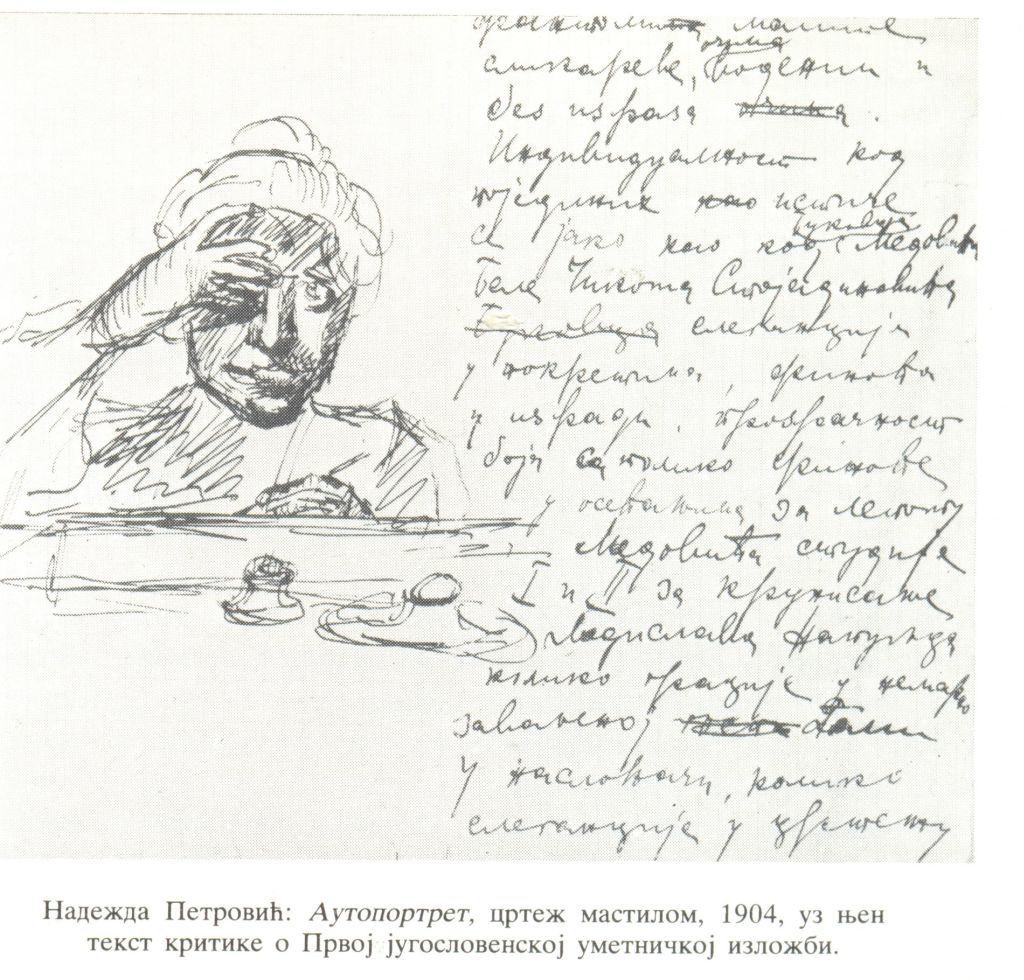 сликареве, водени и
без израза
Индивидуалност код
појединих као истиче
се јако као код Медовића
Беле Чикоша
елеганција
у покретима, финоћа
у изради, прозрачност
боја
у осећањима за лепоту
Медовића студија
I и II за Крунисање
Ладислава Напуљца
колико грације у немарно
заваљеној дами
у наслоњачи, колико
елеганција у
Надежда Петровић: Аутопортрет, цртеж мастилом, 1904, уз њен
текст критике о Првој југословенској уметничкој изложби.